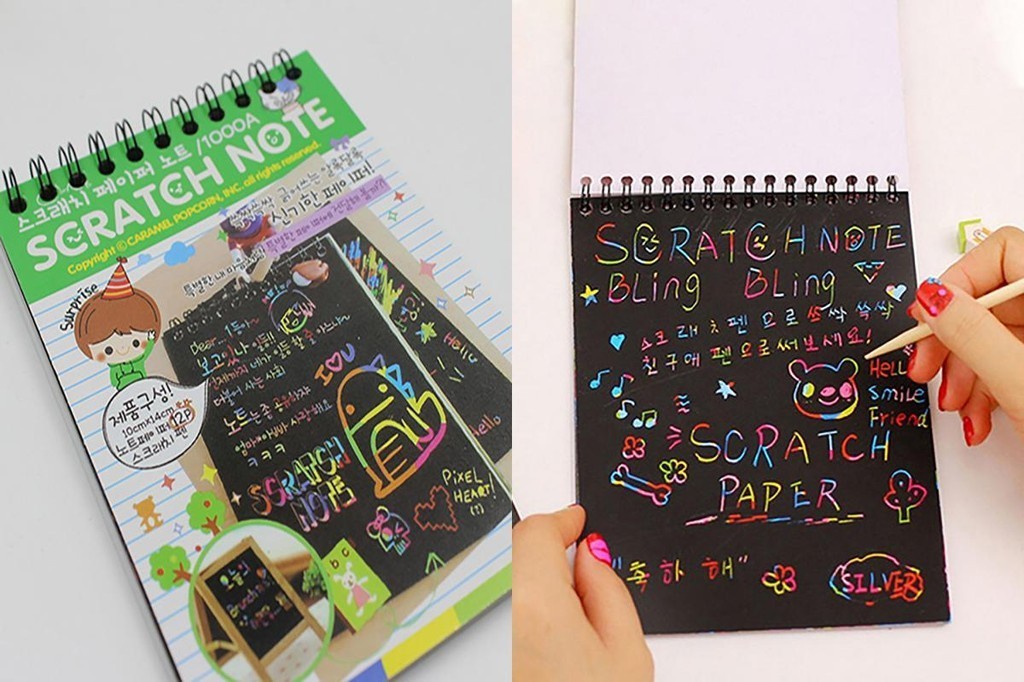 스크래치 페이퍼 노트 /1000A
SCRATCH NOTE
Copyright © CARAMEL POPCORN, INC. all rights reserved.
신기한 페이퍼!
Surprise
제품구성!
10cm×14cm
노트페이퍼 12P
스크래치 펜
Dear~
보고있나
더불어 사는 사회
노트는좀 공유하자
ㅋㅋㅋ
I ♡ U
Hello
Hello
SCRATCH
NOTE
PiXEL
HEART!
(?)
b c
SCRATCH NOTE
BLing BLing
스크래치펜으로 쓱싹쓱싹
친구에 펜으로써보세요!
HELLO
Smile
Friend
SCRATCH
PAPER
"축하해"
SILVER